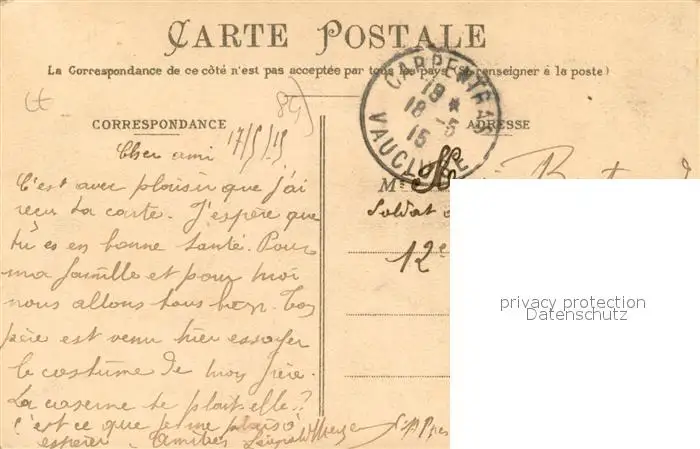 CARTE POSTALE
La Correspondance de ce côté n'est pas acceptée par tous les pays (Se renseigner à la poste)
84
CORRESPONDANCE
ADRESSE
CARPENTRAS
18 *
18 -5
15
VAUCLUSE
17/5/15
Cher ami
C'est avec plaisir que j'ai
reçu ta carte. J'espère que
tu es en bonne santé. Pour
ma famille et pour moi
nous allons tous bien. Ton
père est venu hier essayer
le costume de mon frère.
La caserne te plait-elle ??
C'est ce que je me plais à
espérer. Amitiés
M
Soldat
12e
privacy protection
Datenschutz